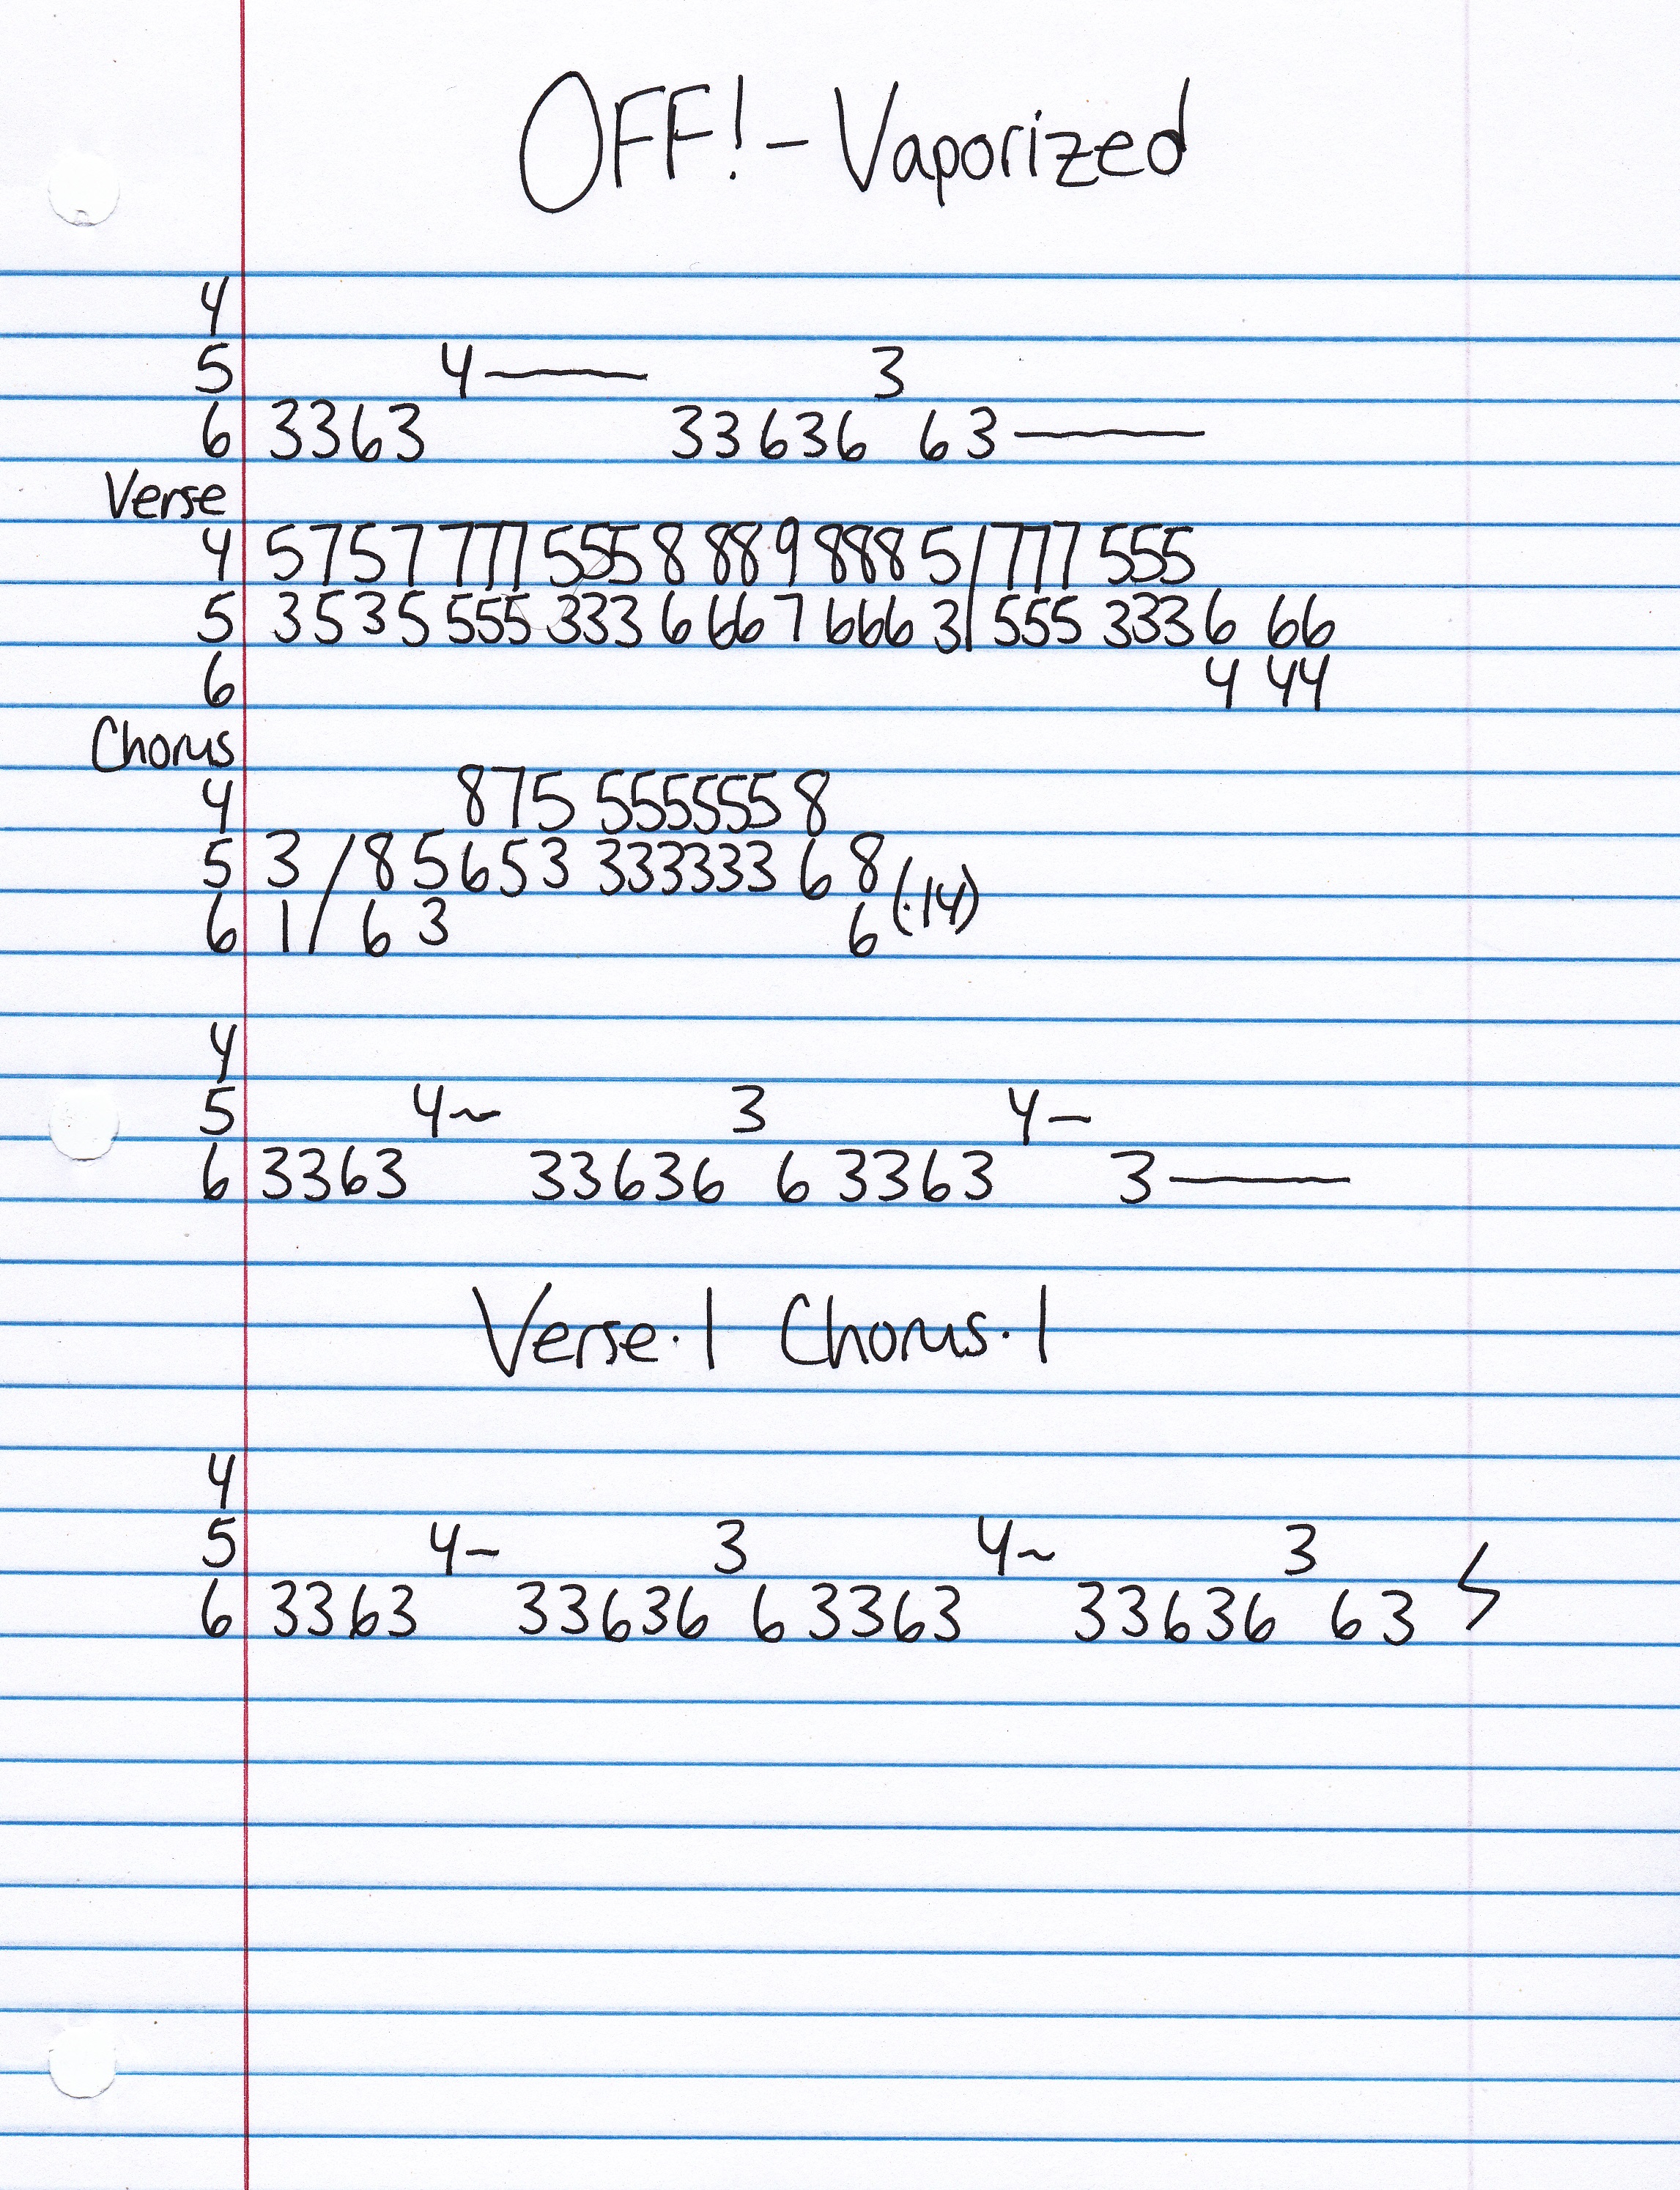 OFF! - Vaporized
4
5 4 —— 3
6 3363 33636 63 ——
Verse
4 5757 777 5558 889 888 5/777 555
5 3535 555 333 6 667 666 3/555 333 6 66
6 4 44
Chorus
4 875 5555558
5 3/85653 333333 6 8 (·14)
6 1/63 6
4
5 4~ 3 4–
6 3363 33636 6 3363 3 ——
Verse·1 Chorus·1
4
5 4– 3 4~ 3
6 3363 33636 6 3363 33636 63